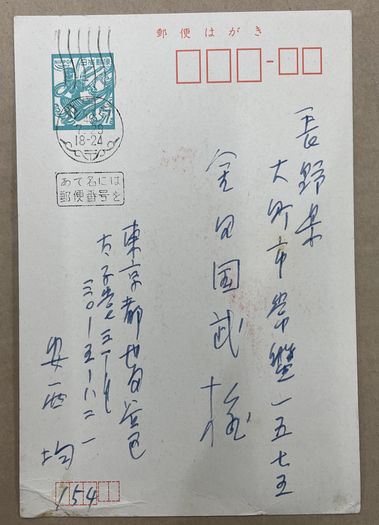 郵便はがき
18-24
あて名には
郵便番号を
長野県
大町市常盤一五七五
金田国武様
東京都世田谷区
太子堂
三〇ー五ー八二一
安西均
154